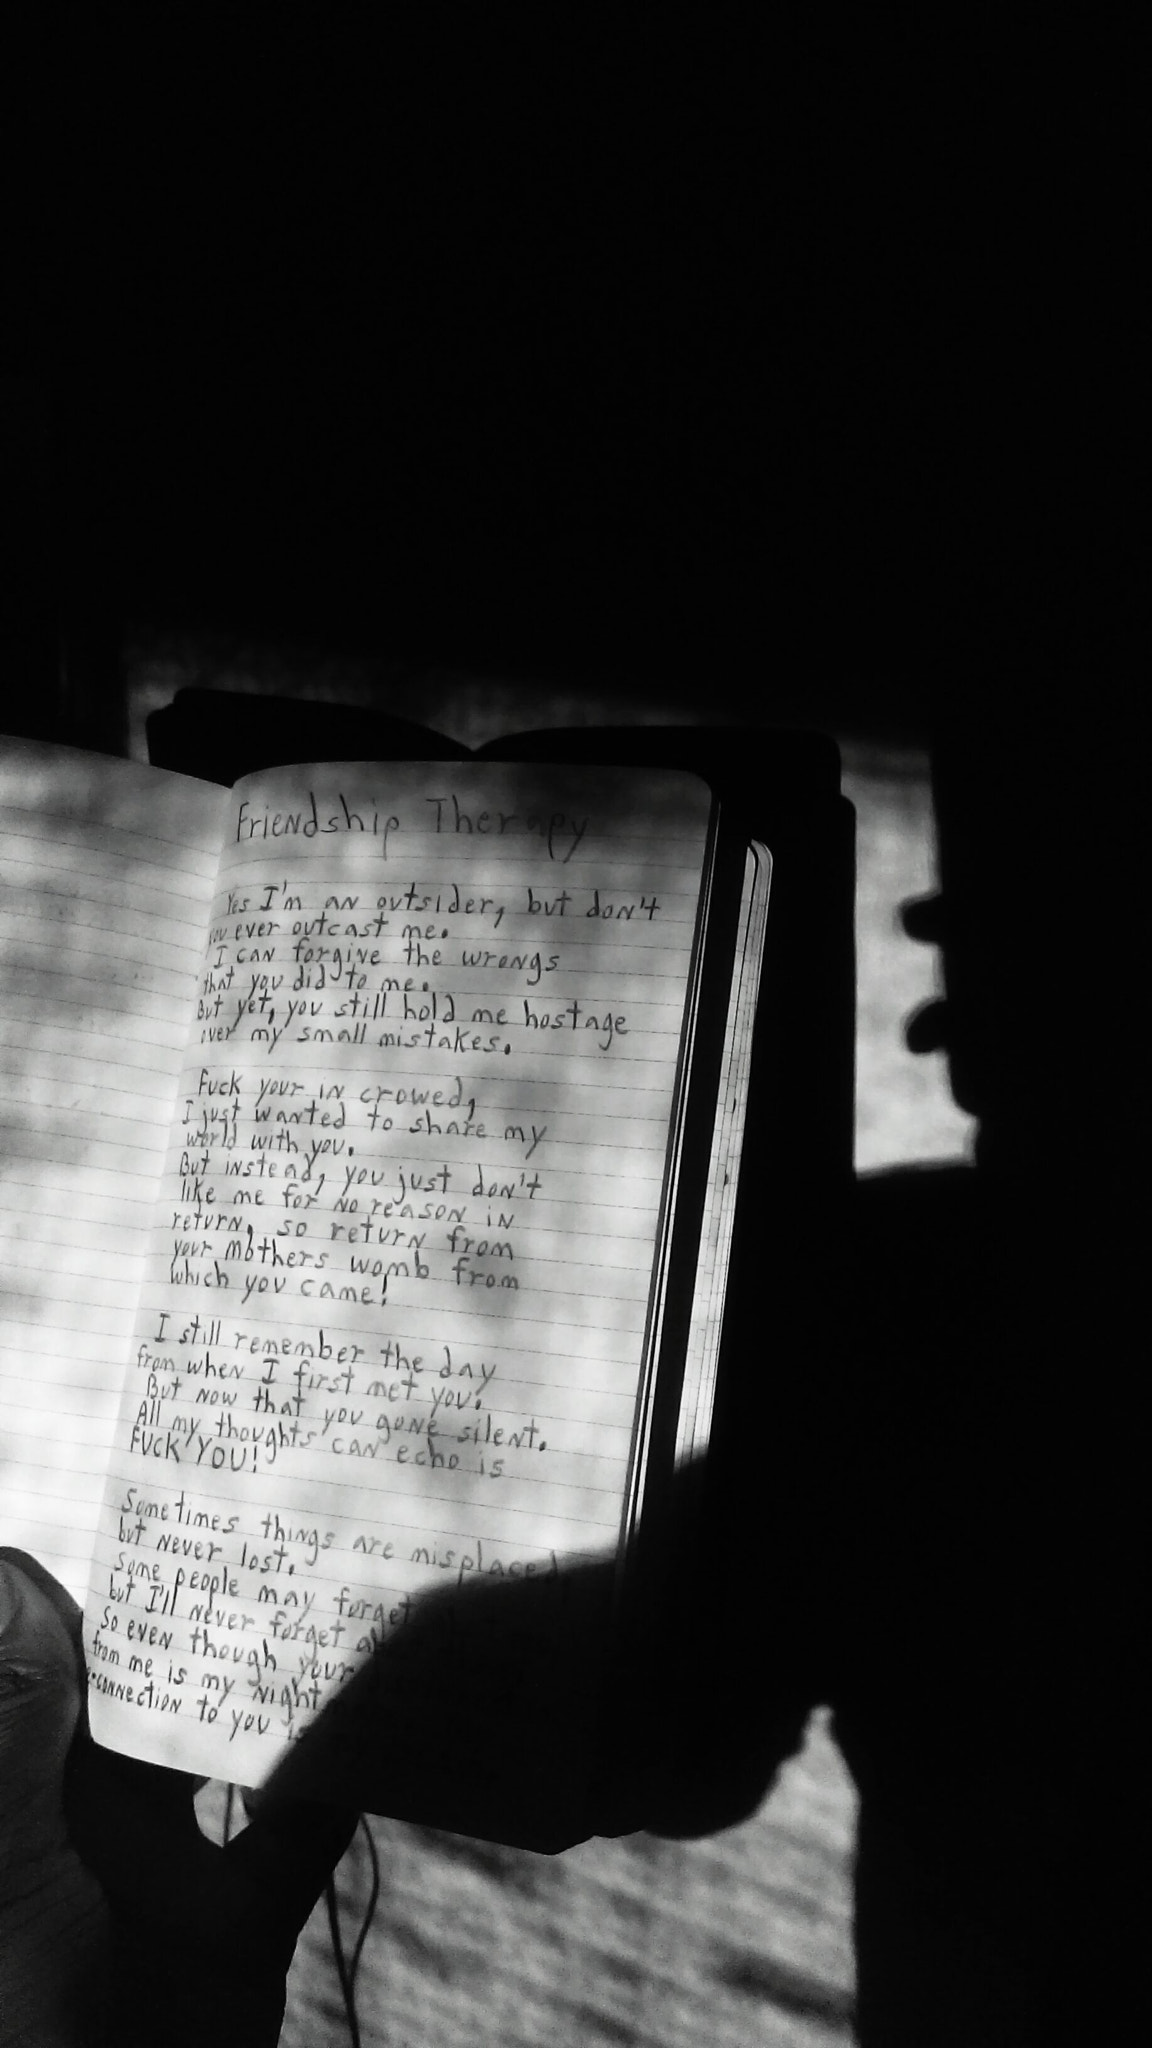 Friendship Therapy
Yes I'm an outsider, but don't
you ever outcast me.
I can forgive the wrongs
that you did to me.
But yet, you still hold me hostage
over my small mistakes.
Fuck your in crowed,
I just wanted to share my
world with you.
But instead, you just don't
like me for no reason in
return, so return from
your mothers womb from
which you came!
I still remember the day
from when I first met you.
But now that you gone silent.
All my thoughts can echo is
FUCK YOU!
Sometimes things are misplaced,
but never lost.
Some people may forget
but I'll never forget
So even though your
from me is my night
connection to you